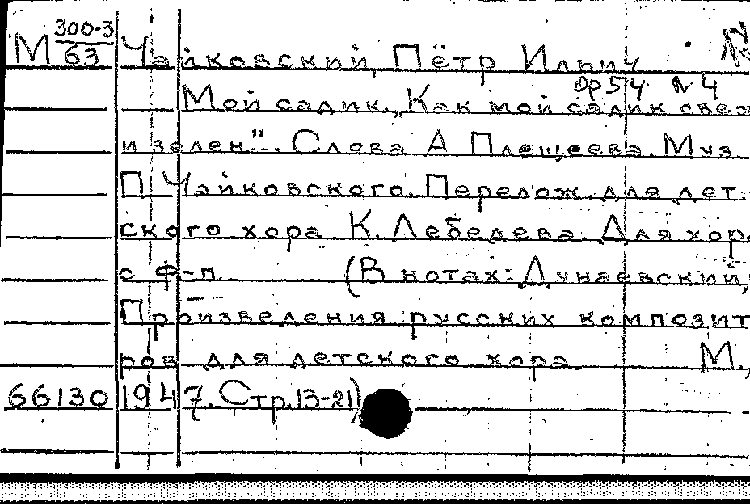 М 300-3/63 Чайковский, Пётр Ильич
Op 54 N 4
Мой садик. „Как мой садик свеж
и зелен". Слова А Плещеева. Муз
П Чайковского. Перелож. для дет.
ского хора К. Лебедева. Для хора
с ф-п. (В нотах: Дунаевский,
Произведения русских композит
ров для детского хора. М.,
66130 1947. Стр. 13-21)